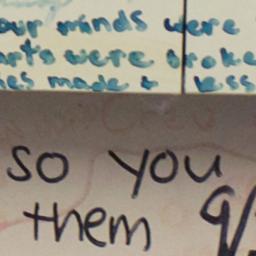 our minds were
arts were broke
es made & less
so you
them